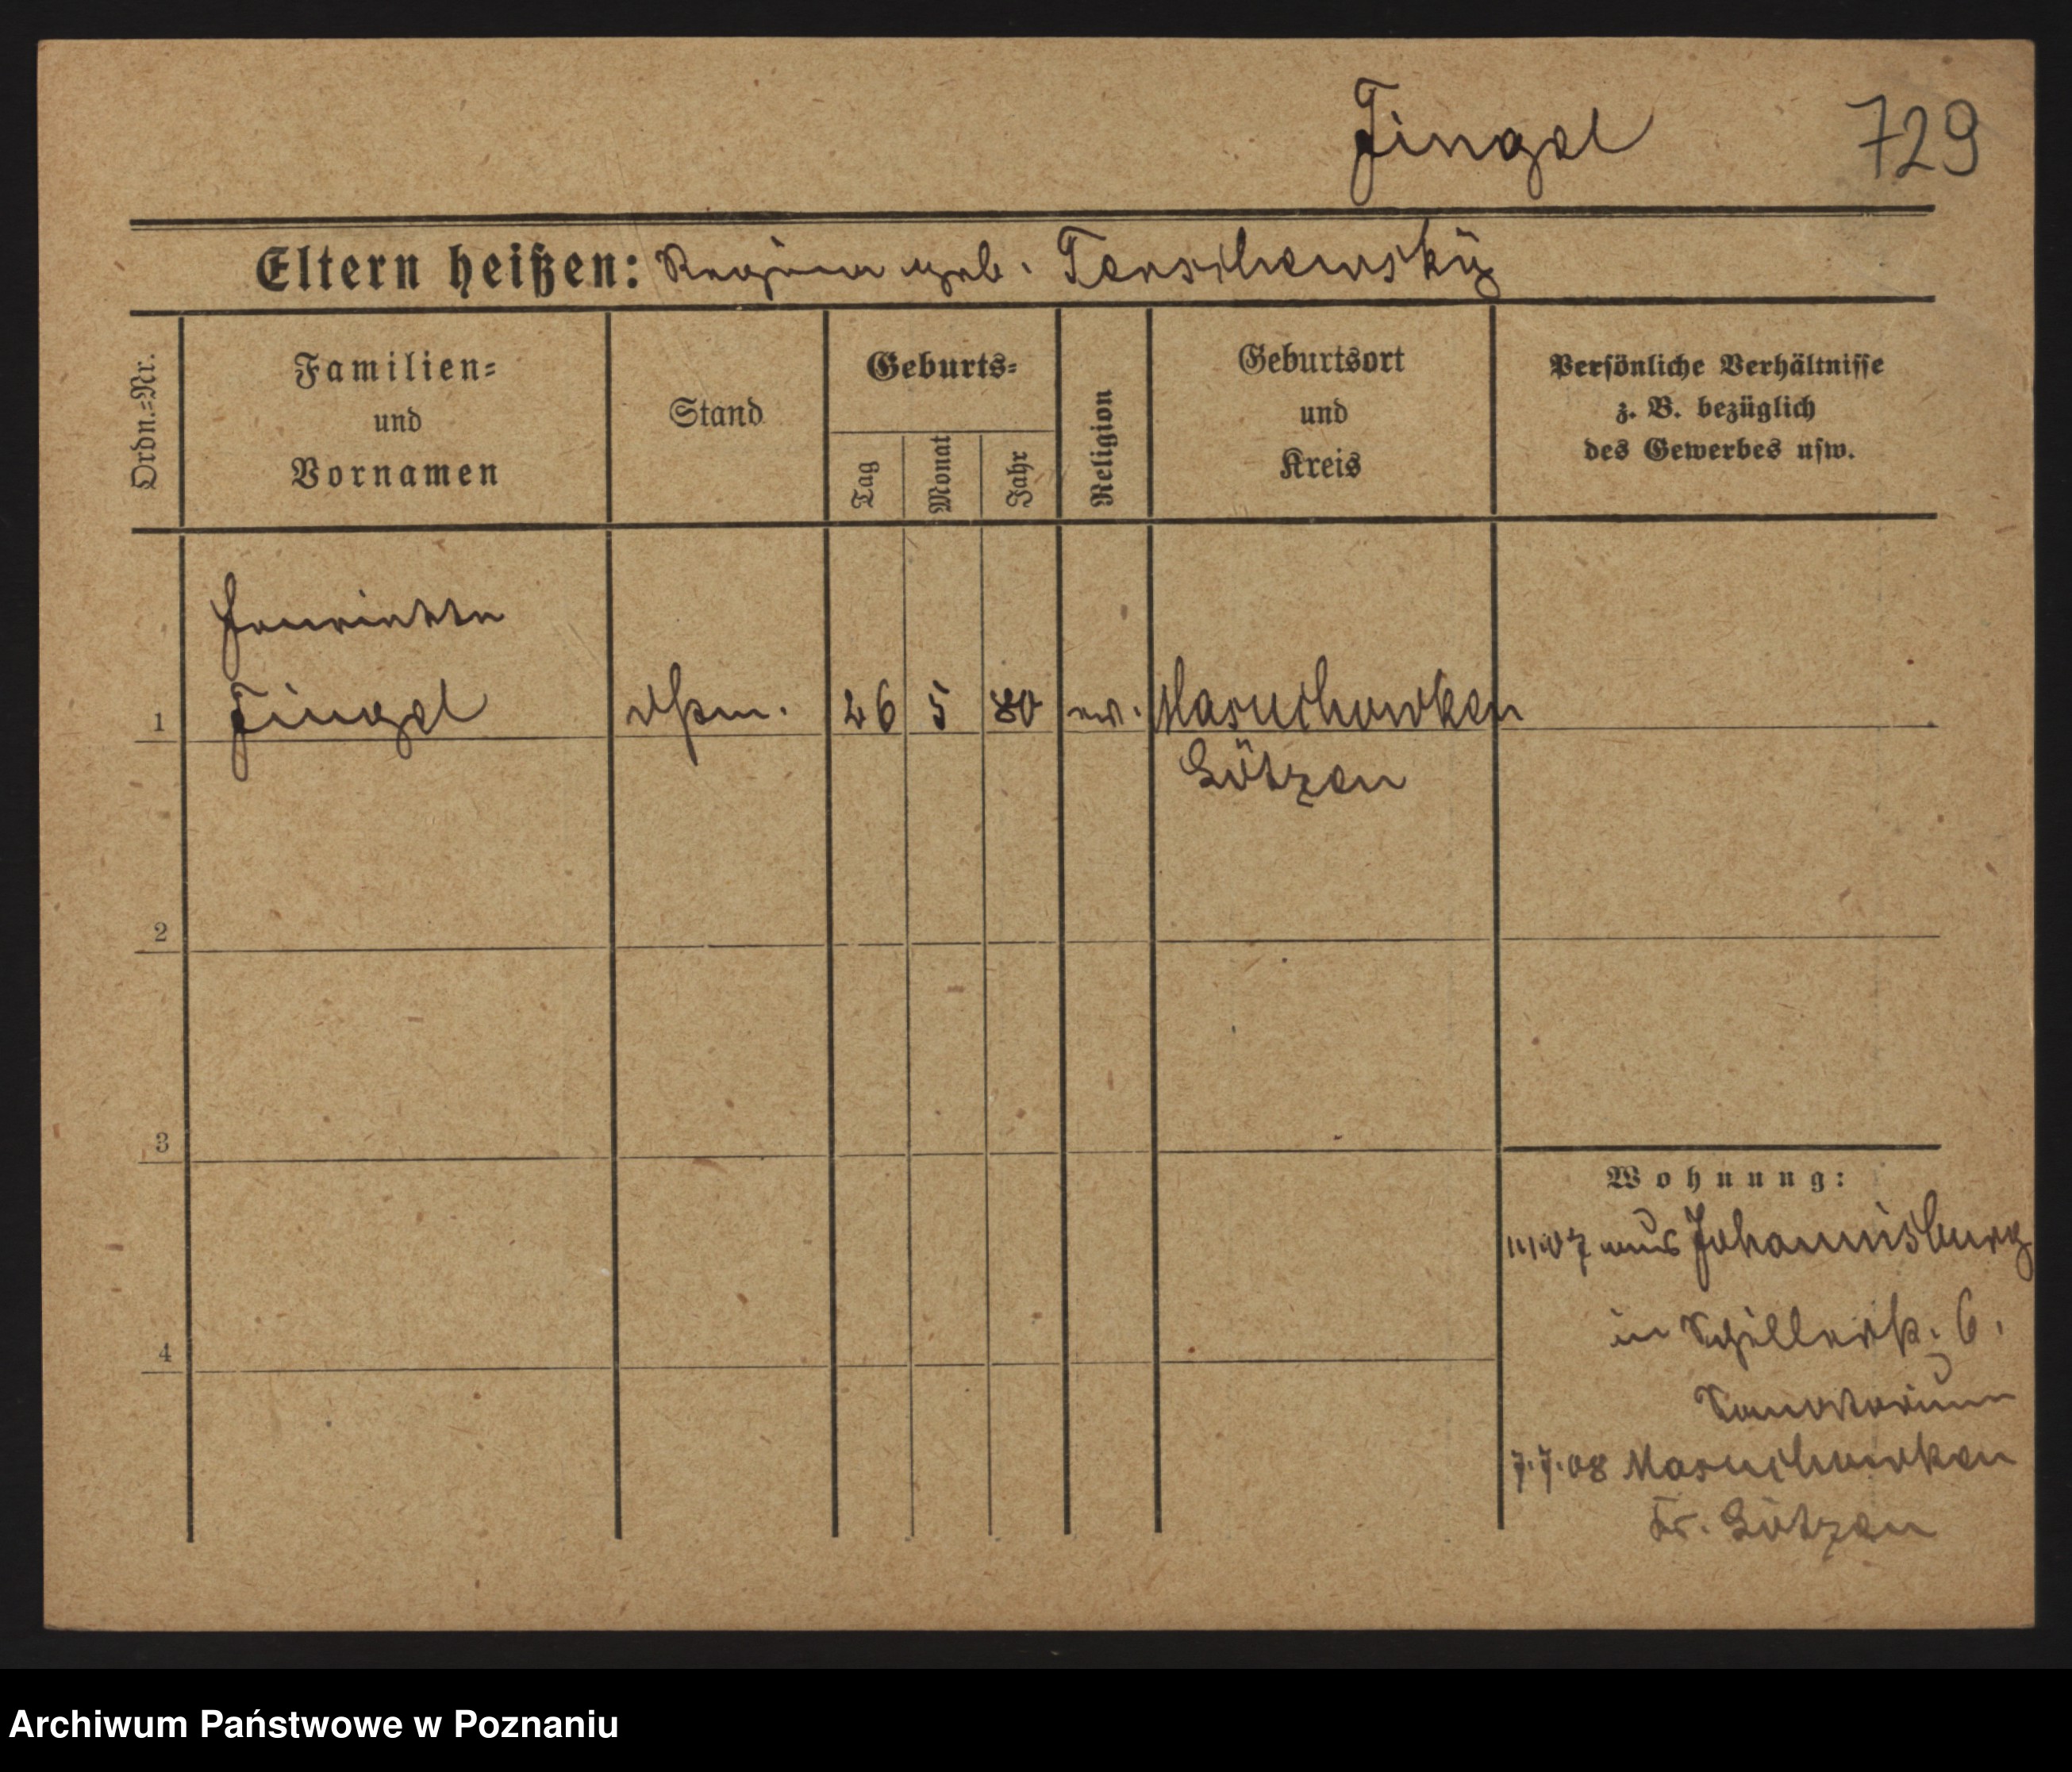 Fingel 729
Eltern heißen: Regina geb.
Ordn.=Nr.
Familien=
und
Vornamen
Stand
Geburts=
Tag
Monat
Jahr
Religion
Geburtsort
und
Kreis
Persönliche Verhältnisse
z. B. bezüglich
des Gewerbes usw.
Henriette
1 Fingel 26 5 80 ev. Masuchowken
Lötzen
2
3
4
Wohnung:
aus Johannisburg
in Schillerstr. 6.
Sanatorium
7.7.08 Masuchowken
Kr. Lötzen
Archiwum Państwowe w Poznaniu